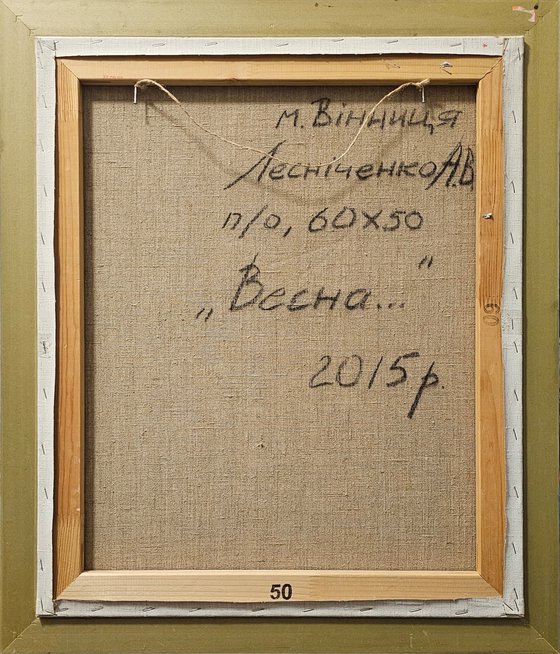 м. Вінниця
Лесніченко А.В
п/о, 60х50
„Весна..."
2015р.
60
50